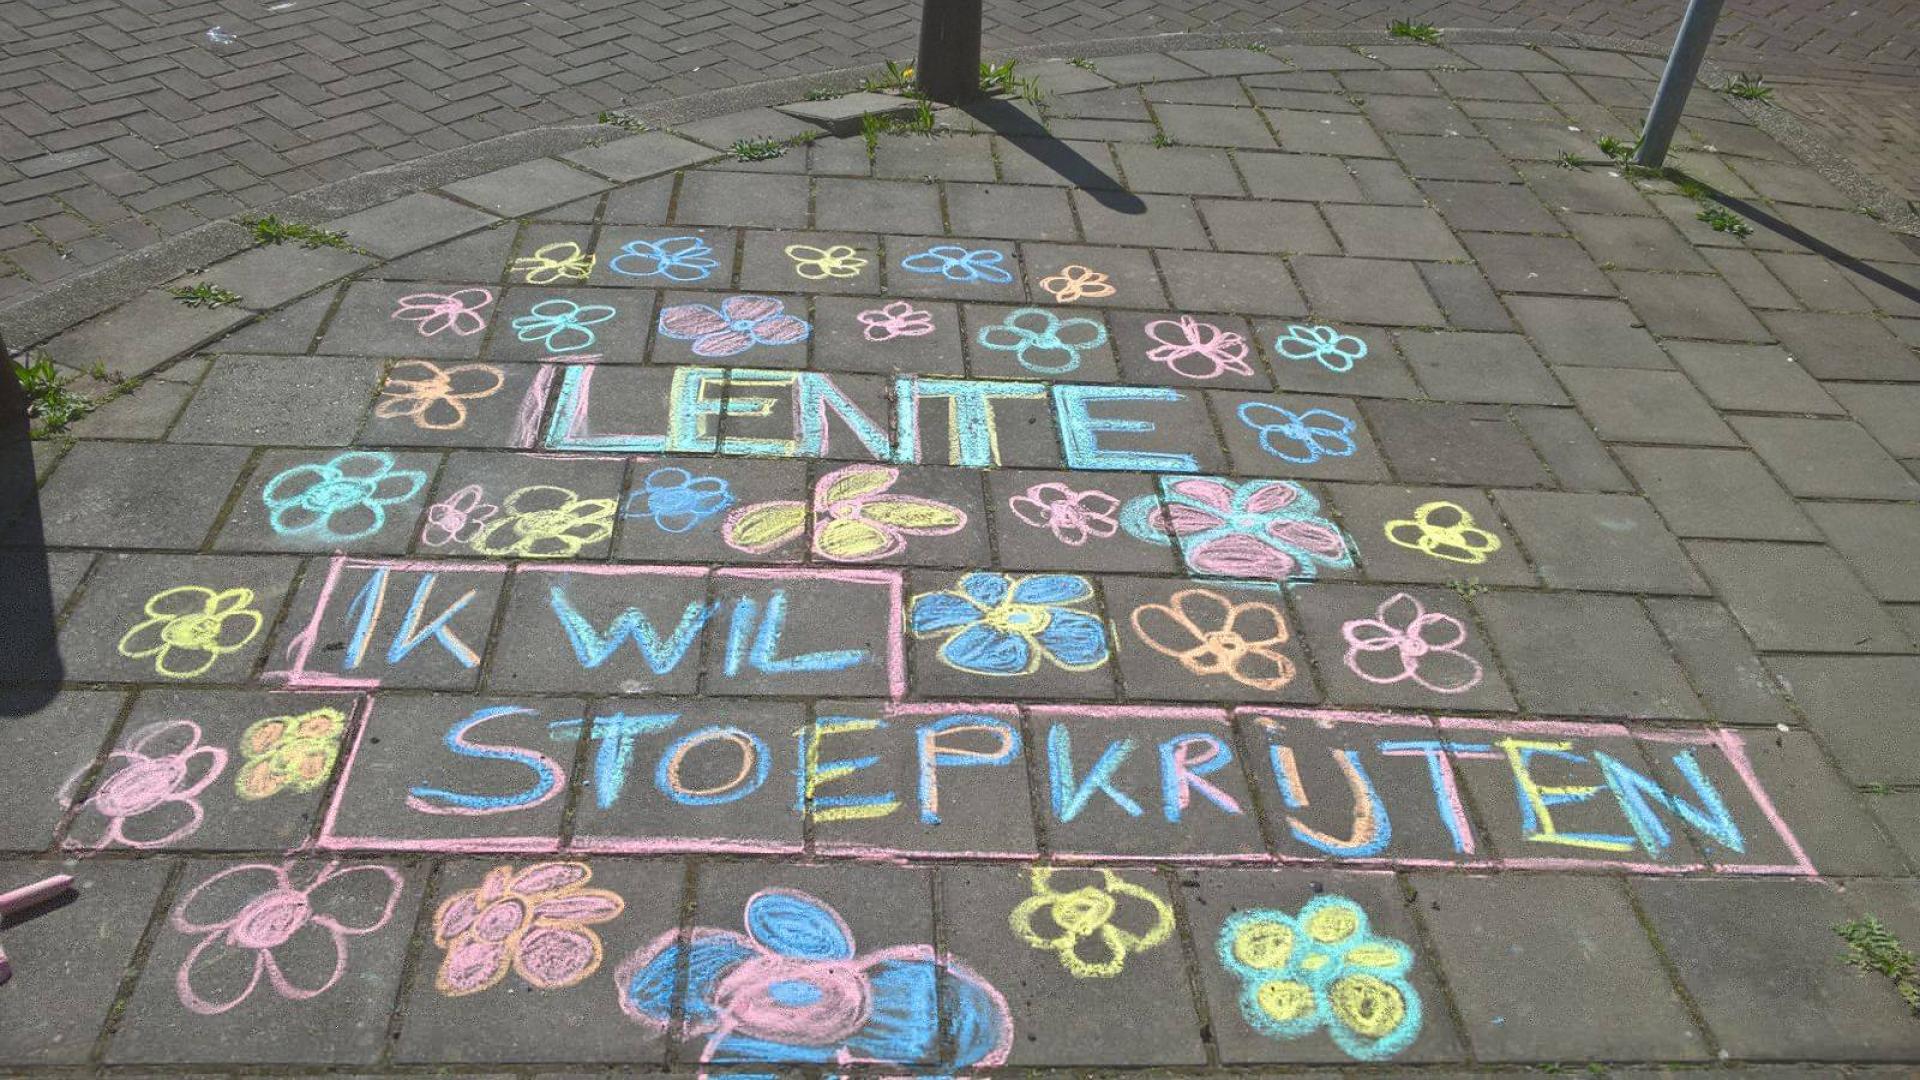 LENTE
IK WIL
STOEPKRIJTEN